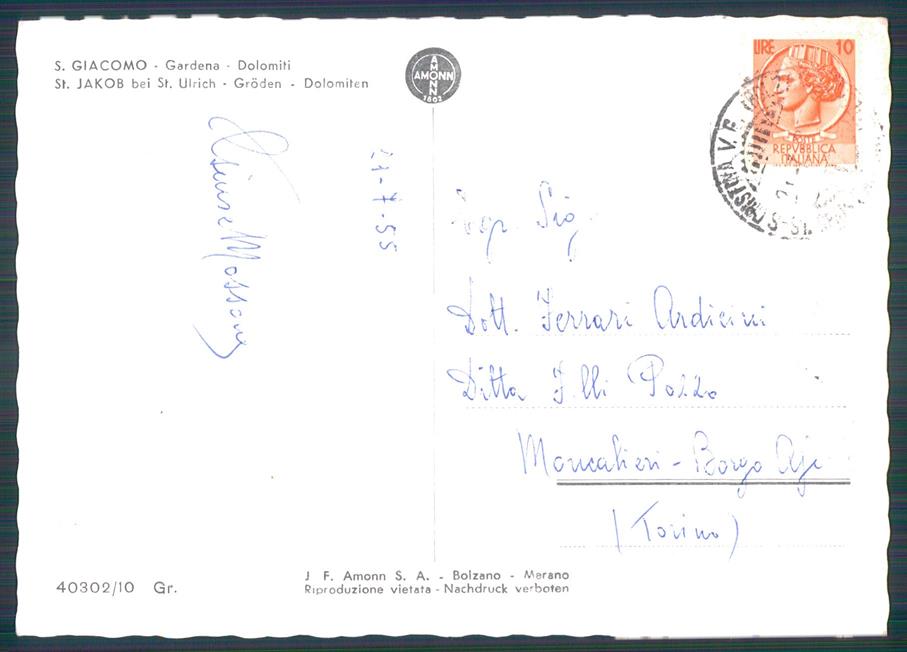 S. GIACOMO - Gardena - Dolomiti
St. JAKOB bei St. Ulrich - Gröden - Dolomiten
AMONN
AMONN
1802
LIRE 10
POSTE
REPVBBLICA
ITALIANA
21-7-55
Sig.
Dott. Ferrari Ardicini
Ditta F.lli Pozzo
Moncalieri - Borgo Aje
(Torino)
J F. Amonn S. A. - Bolzano - Merano
Riproduzione vietata - Nachdruck verboten
40302/10 Gr.